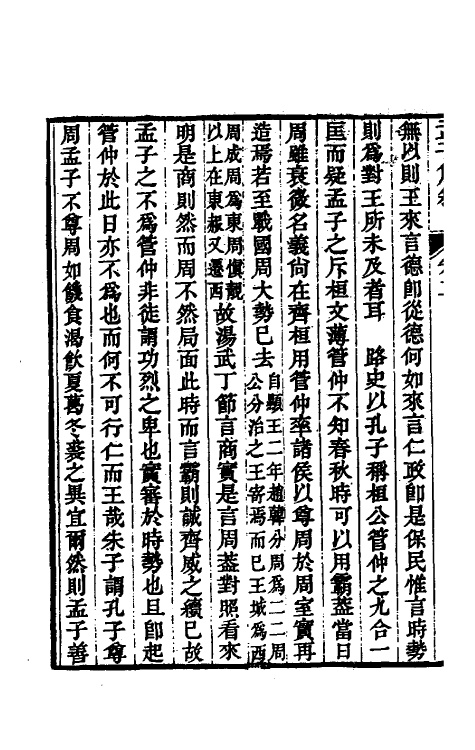 無以則王來言德卽從德何如來言仁政卽是保民惟言時勢
則爲對王所未及者耳　路史以孔子稱桓公管仲之九合一
匡而疑孟子之斥桓文薄管仲不知春秋時可以用霸蓋當日
周雖衰微名義尙在齊桓用管仲率諸侯以尊周於周室實再
造焉若至戰國周大勢已去自顯王二年趙韓分周爲二二周公分治之王寄焉而已王城爲西
周成周爲東周愼靚以上在東赧又遷西故湯武丁節言商實是言周蓋對照看來
明是商則然而周不然局面此時而言霸則誠齊威之續已故
孟子之不爲管仲非徒謂功烈之卑也實審於時勢也且卽起
管仲於此日亦不爲也而何不可行仁而王哉朱子謂孔子尊
周孟子不尊周如饑食渴飮夏葛冬裘之異宜爾然則孟子善